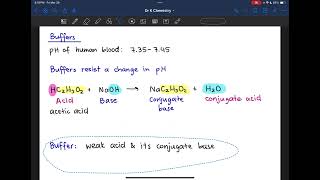 Dr K Chemistry
Buffers
pH of human blood: 7.35-7.45
Buffers resist a change in pH
HC₂H₃O₂ + NaOH → NaC₂H₃O₂ + H₂O
Acid Base Conjugate base conjugate acid
acetic acid
Buffer: weak acid & its conjugate base